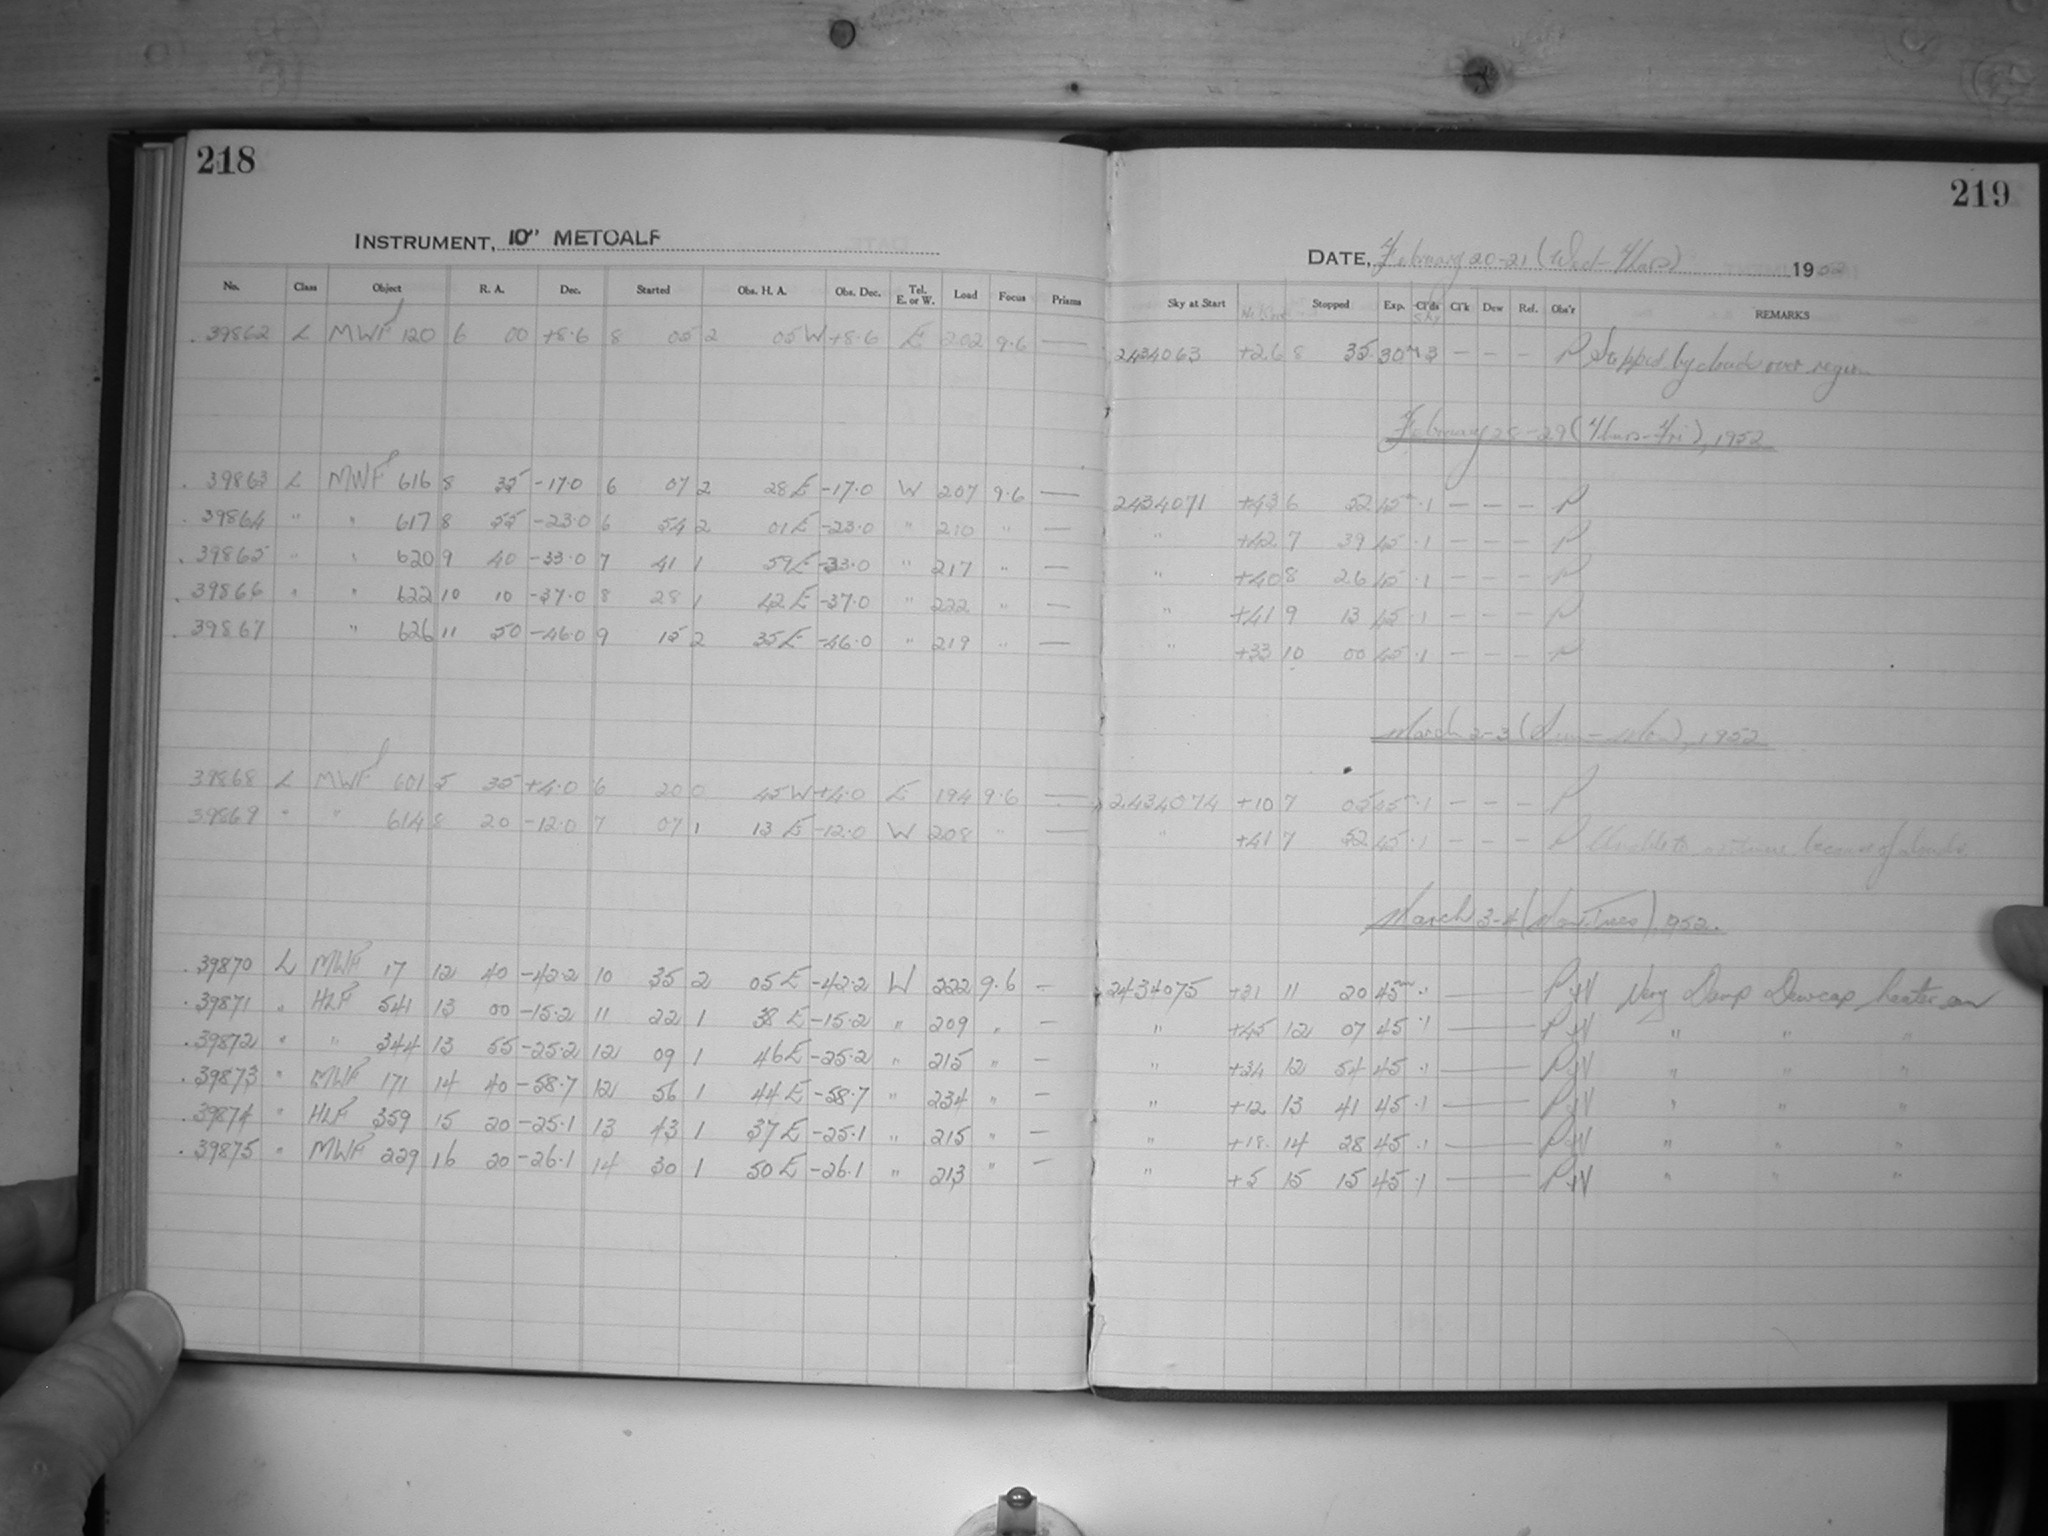 218
INSTRUMENT, 10" METCALF
No. Class Object R. A. Dec. Started Obs. H. A. Obs. Dec. Tel. E. or W. Load Focus Prisms
39862 L MWF 120 6 00 +8.6 8 05 2 05 W +8.6 E 202 9.6 —
39863 L MWF 616 8 35 -17.0 6 07 2 28 E -17.0 W 207 9.6 —
39864 " " 617 8 55 -23.0 6 54 2 01 E -23.0 " 210 " —
39865 " " 620 9 40 -33.0 7 41 1 59 E -33.0 " 217 " —
39866 " " 622 10 10 -37.0 8 28 1 42 E -37.0 " 222 " —
39867 " 626 11 50 -46.0 9 15 2 35 E -46.0 " 219 " —
39868 L MWF 601 5 35 +4.0 6 20 0 45 W +4.0 E 194 9.6 —
39869 " " 614 8 20 -12.0 7 07 1 13 E -12.0 W 208 " —
39870 L MWF 17 12 40 -42.2 10 35 2 05 E -42.2 W 222 9.6 —
39871 " HLF 541 13 00 -15.2 11 22 1 38 E -15.2 " 209 " —
39872 " " 344 13 55 -25.2 12 09 1 46 E -25.2 " 215 " —
39873 " MWF 171 14 40 -58.7 12 56 1 44 E -58.7 " 234 " —
39874 " HLF 359 15 20 -25.1 13 43 1 37 E -25.1 " 215 " —
39875 " MWF 229 16 20 -26.1 14 30 1 50 E -26.1 " 213 " —
219
DATE, February 20-21 (Wed-Thurs) 1952
Sky at Start Stopped Exp. Cl'ds Cl'k Dew Rel. Obs'r REMARKS
2434063 +26 8 35 30m 3 — — — P Stopped by clouds over region
February 28-29 (Thurs-Fri), 1952
2434071 +43 6 52 45m .1 — — — P
" +42 7 39 45 .1 — — — P
" +40 8 26 45 .1 — — — P
" +41 9 13 45 .1 — — — P
" +33 10 00 45 .1 — — — P
March 2-3 (Sun-Mon), 1952
2434074 +10 7 05 45m .1 — — — P
" +41 7 52 45 .1 — — — P Unable to continue because of clouds
March 3-4 (Mon-Tues), 1952.
2434075 +31 11 20 45m .1 — Very Damp Dewcap heater on
" +45 12 07 45 .1 — " " "
" +34 12 54 45 .1 — " " "
" +12 13 41 45 .1 — " " "
" +18 14 28 45 .1 — " " "
" +5 15 15 45 .1 — " " "